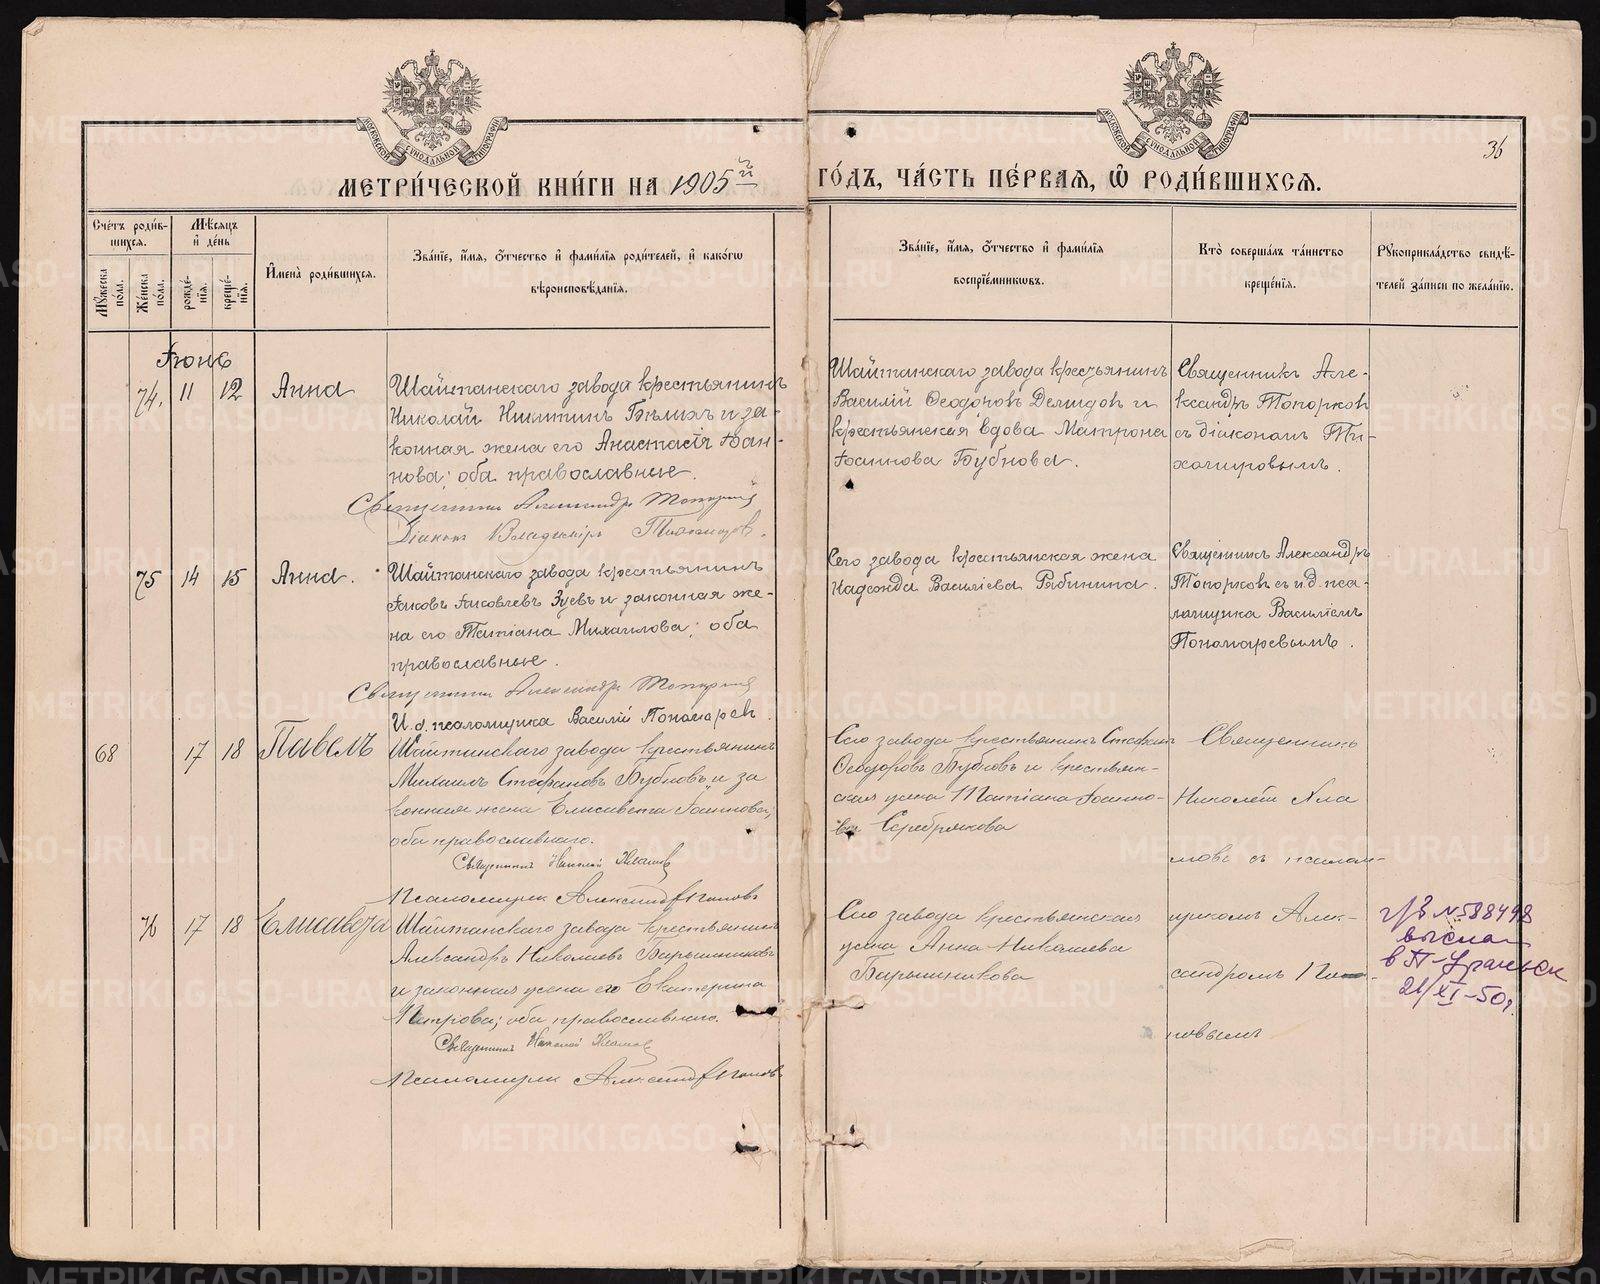 МОСКОВСКОЙ СѴНОДАЛЬНОЙ ТИПОГРАФІИ
МОСКОВСКОЙ СѴНОДАЛЬНОЙ ТИПОГРАФІИ
36
МЕТРИ́ЧЕСКОЙ КНИ́ГИ НА 1905й
ГО́ДЪ, ЧА́СТЬ ПЕ́РВАѦ, Ѽ РОДИ́ВШИХСѦ.
Сче́тъ роди́в-
шихся.
Мѣ́сяцъ
и҆ де́нь
Му́жеска по́ла.
Же́нска по́ла.
рожде́-
нїя.
креще́-
нїя.
И҆мена̀ роди́вшихся.
Зва́нїе, и҆́мя, ѻ҆́тчество и҆ фами́лїя роди́телей, и҆ како́гѡ
вѣроисповѣ́данїя.
Зва́нїе, и҆́мя, ѻ҆́тчество и҆ фами́лїя
воспрїе́мникѡвъ.
Кто̀ соверша́лъ та́инство
креще́нїя.
Рꙋкоприкла́дство свидѣ́-
телей за́писи по жела́нїю.
Іюнь
74. 11 12 Анна
Шайтанскаго завода крестьянинъ
Николай Никитинъ Бѣлыхъ и за-
конная жена его Анастасія Іоан-
нова; оба православные.
Священникъ Александръ Топорковъ
Діаконъ Владиміръ Тихомировъ.
Шайтанскаго завода крестьянинъ
Василій Ѳеодоровъ Демидовъ и
крестьянская вдова Матрона
Іоаннова Бубнова.
Священникъ Але-
ксандръ Топорковъ
съ діакономъ Ти-
хомировымъ.
75 14 15 Анна.
Шайтанскаго завода крестьянинъ
Іаковъ Іаковлевъ Зуевъ и законная же-
на его Татіана Михаилова; оба
православные.
Священникъ Александръ Топорковъ
И. д. псаломщика Василій Пономаревъ.
Сего завода крестьянская жена
Надежда Василіева Рябинина.
Священникъ Александръ
Топорковъ съ и. д. пса-
ломщика Василіемъ
Пономаревымъ.
68 17 18 Павелъ
Шайтанскаго завода крестьянинъ
Михаилъ Стефановъ Бубновъ и за
конная жена Елисавета Іоаннова;
оба православнаго.
Священникъ Николай Хламовъ
Псаломщикъ Александръ Поповъ
Сего завода крестьянинъ Стефанъ
Ѳеодоровъ Бубновъ и крестьян-
ская жена Татіана Іоанно-
ва Серебрякова
Священникъ
Николай Хла
мовъ съ псалом-
76 17 18 Елисавета
Шайтанскаго завода крестьянинъ
Александръ Николаевъ Барышниковъ
и законная жена его Екатерина
Петрова; оба православнаго.
Священникъ Николай Хламовъ
Псаломщикъ Александръ Поповъ
Сего завода крестьянская
жена Анна Николаева
Барышникова
щикомъ Алек-
сандромъ По-
повымъ
№ 588498
выслан
в П-Уральск
21/XI-50г.